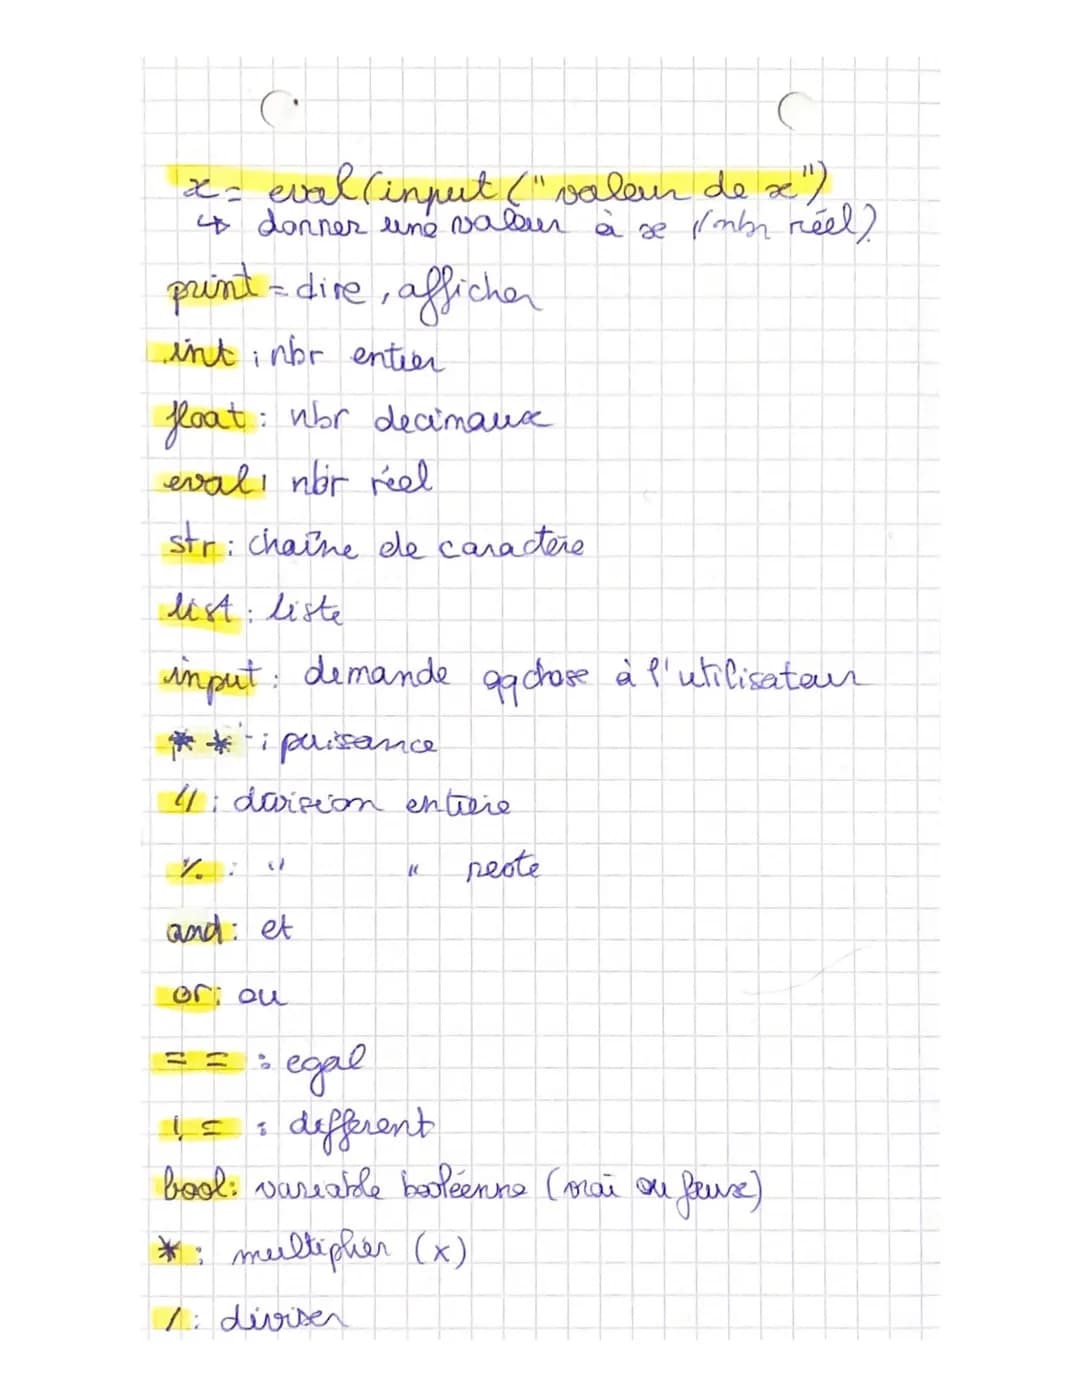 x = eval(input ("valeur de x")
↳ donner une valeur à x (nbr réel)
print = dire, afficher
int : nbr entier
float : nbr decimaux
eval : nbr réel
str : chaîne de caractère
list : liste
input : demande qqchose à l'utilisateur
** : puissance
// : division entière
% : " " reste
and : et
or : ou
== : egal
!= : different
bool : variable booléenne (vrai ou faux)
* : multiplier (x)
/ : diviser